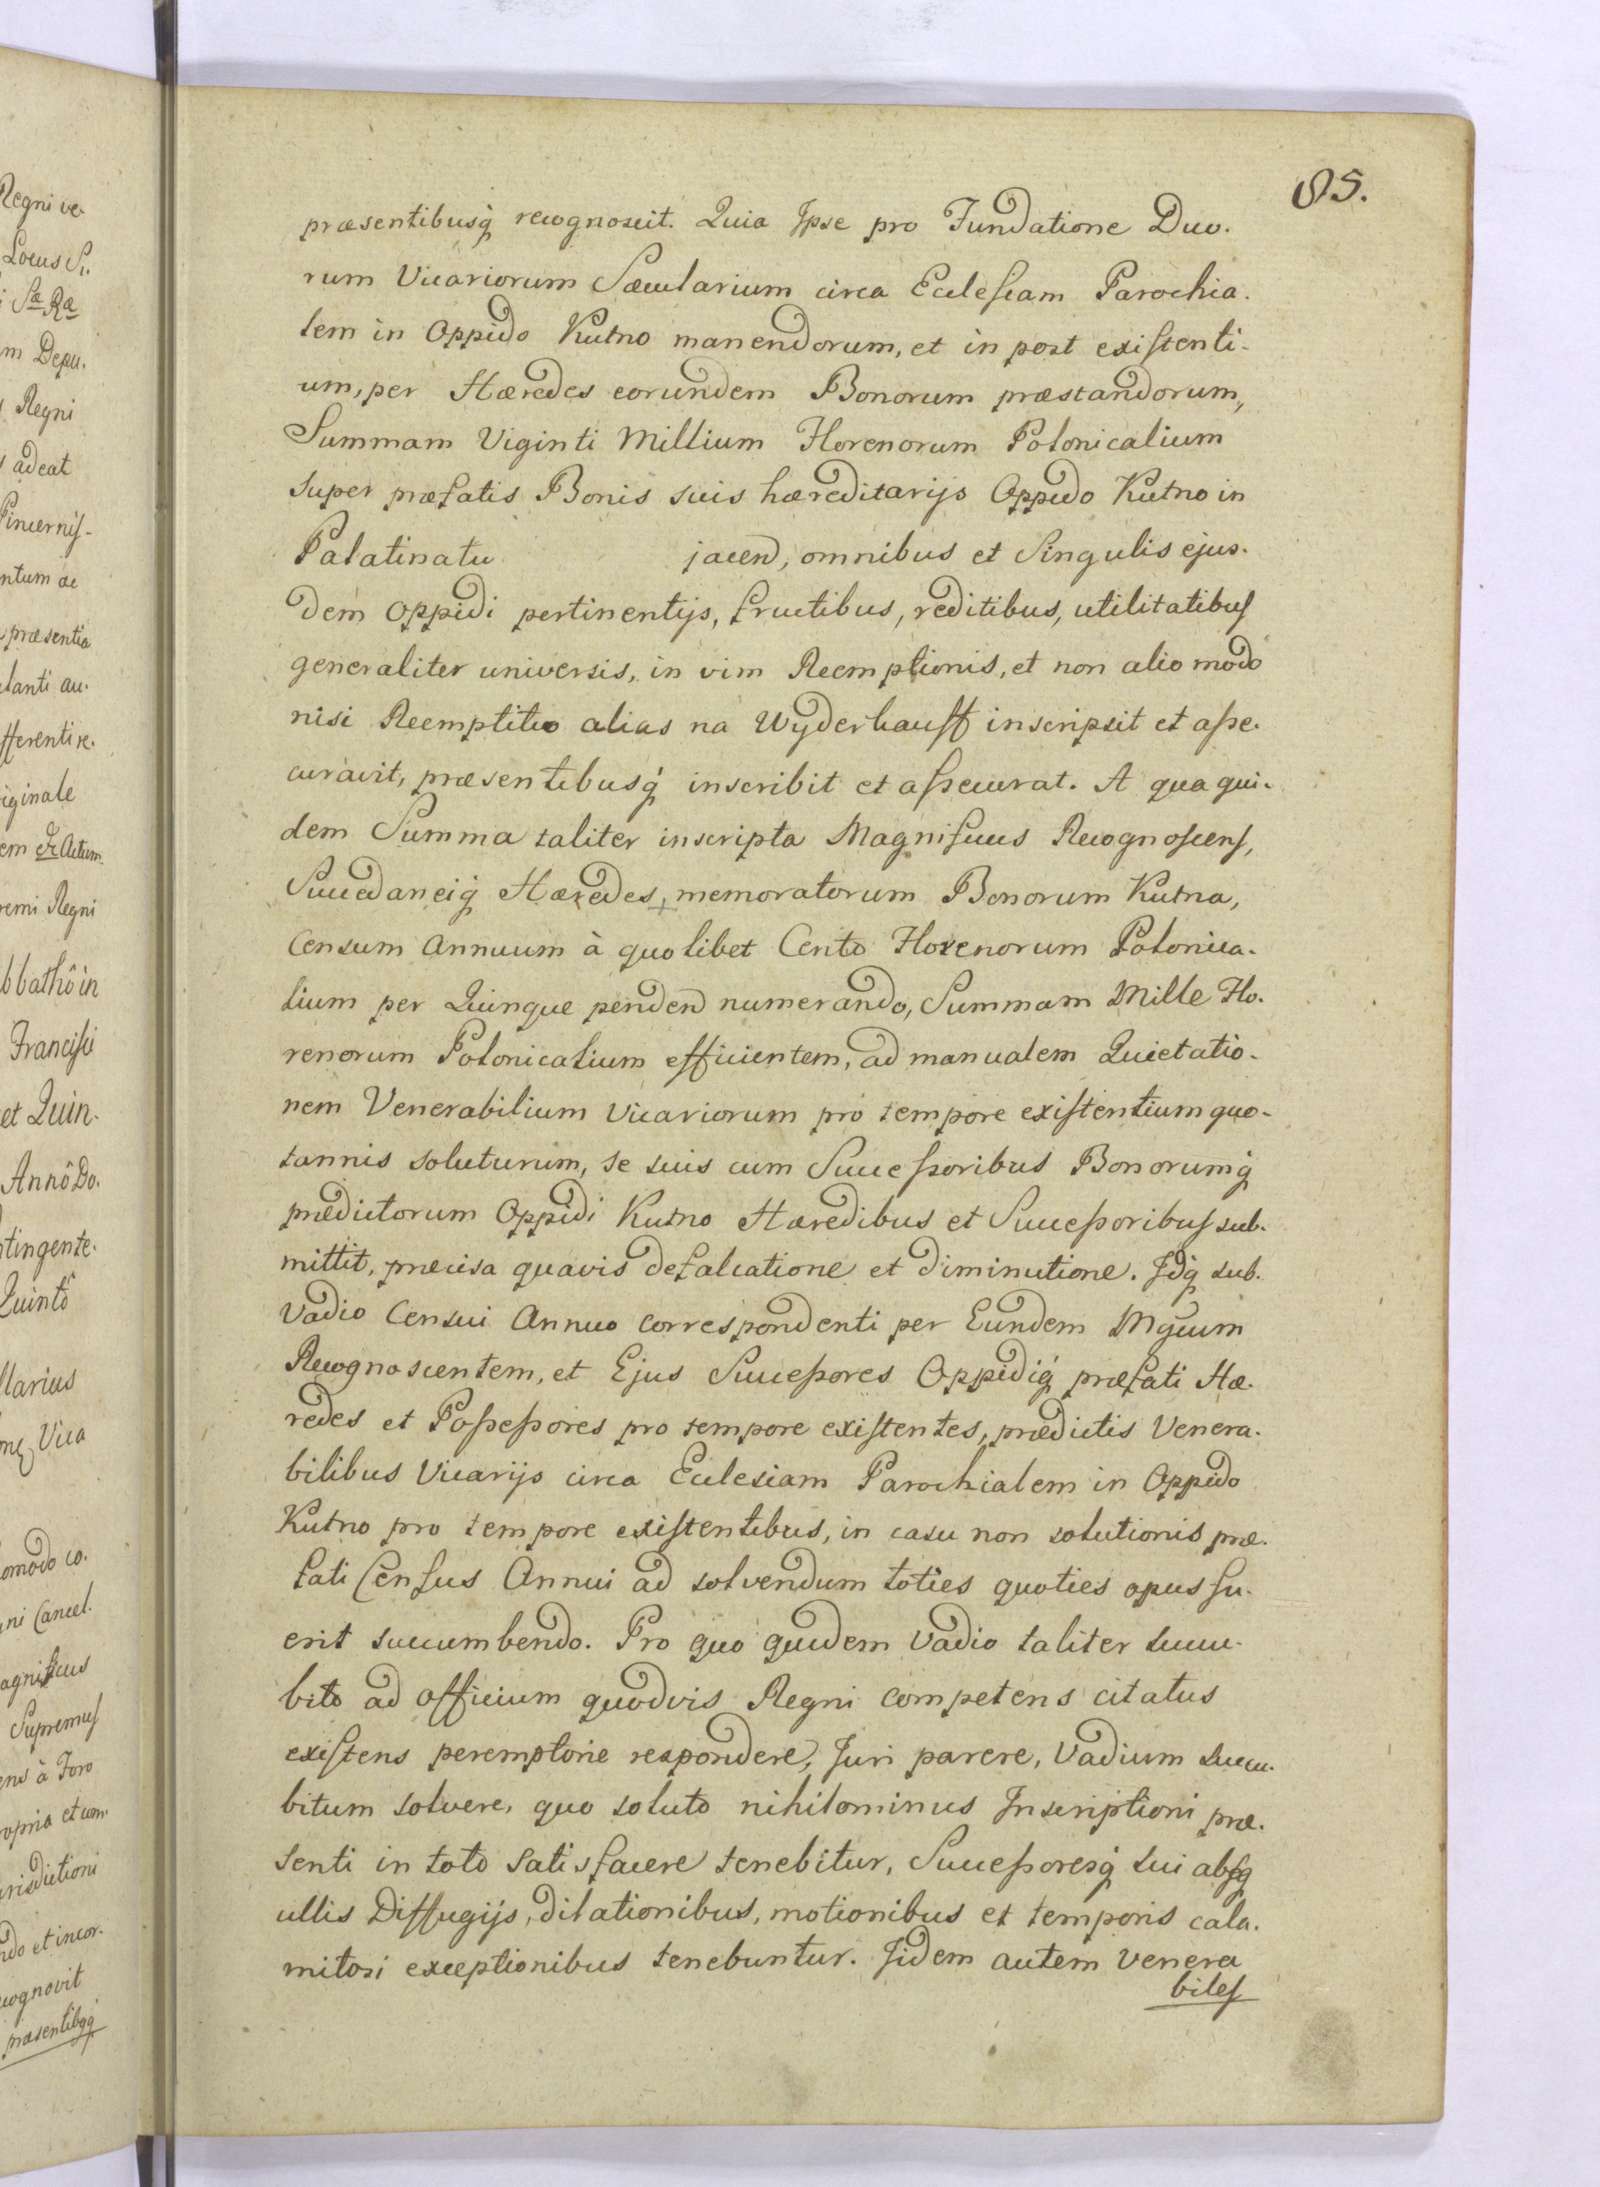 85.
præsentibusq́ recognoscit. Quia Ipse pro Fundatione Duo-
rum Vicariorum Sæcularium circa Ecclesiam Parochia-
lem in Oppido Kutno manendorum, et in post existenti-
um, per Hæredes eorundem Bonorum præstandorum,
Summam Viginti Millium Florenorum Polonicalium
super præfatis Bonis suis hæreditarijs Oppido Kutno in
Palatinatu jacen, omnibus et Singulis ejus-
dem Oppidi pertinentijs, fructibus, reditibus, utilitatibus
generaliter universis, in vim Reemptionis, et non alio modo
nisi Reemptitio alias na Wyderkauff inscripsit et asse-
curavit, præsentibusq́ inscribit et assecurat. A qua qui-
dem Summa taliter inscripta Magnificus Recognoscens,
Succedaneiq́ Hæredes, memoratorum Bonorum Kutna,
Censum Annuum à quolibet Cento Florenorum Polonica-
lium per Quinque penden numerando, Summam Mille Flo-
renorum Polonicalium efficientem, ad manualem Quietatio-
nem Venerabilium Vicariorum pro tempore existentium quo-
tannis soluturum, se suis cum Successoribus Bonorumq́
prædictorum Oppidi Kutno Hæredibus et Successoribus sub-
mittit, præcisa quavis defalcatione et diminutione. Idq́ sub-
Vadio Censui Annuo correspondenti per Eundem Mgcum
Recognoscentem, et Ejus Successores Oppidiq́ præfati Hæ-
redes et Possessores pro tempore existentes, prædictis Venera-
bilibus Vicarijs circa Ecclesiam Parochialem in Oppido
Kutno pro tempore existentibus, in casu non solutionis præ-
fati Census Annui ad solvendum toties quoties opus fu-
erit succumbendo. Pro quo quidem Vadio taliter succu-
bito ad Officium quodvis Regni competens citatus
existens peremptorie respondere, Juri parere, Vadium succu-
bitum solvere, quo soluto nihilominus Inscriptioni præ-
senti in toto satisfacere tenebitur, Successoresq́ sui absq
ullis Diffugijs, dilationibus, motionibus et temporis cala-
mitosi exceptionibus tenebuntur. Iidem autem Venera
biles